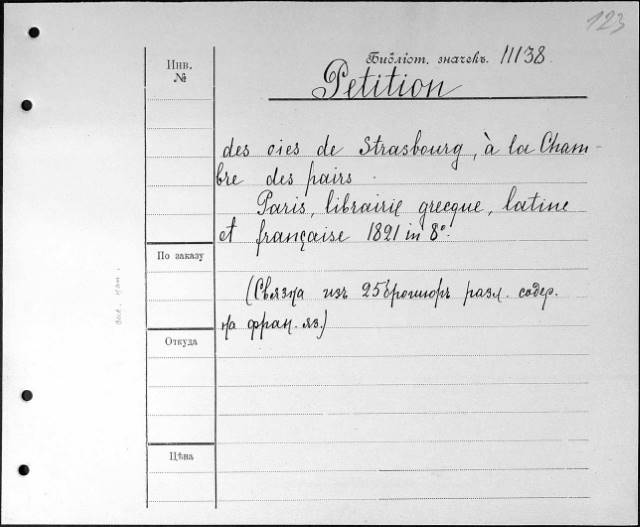 123
Библіот. значекъ. 11138.
Инв.
№
Petition
des oies de Strasbourg, à la Cham-
bre des pairs.
Paris, librairie grecque, latine
et française 1821 in 8º.
По заказу
(Связка изъ 25 брошюръ разл. содер.
на фран. яз.)
Откуда
Цѣна